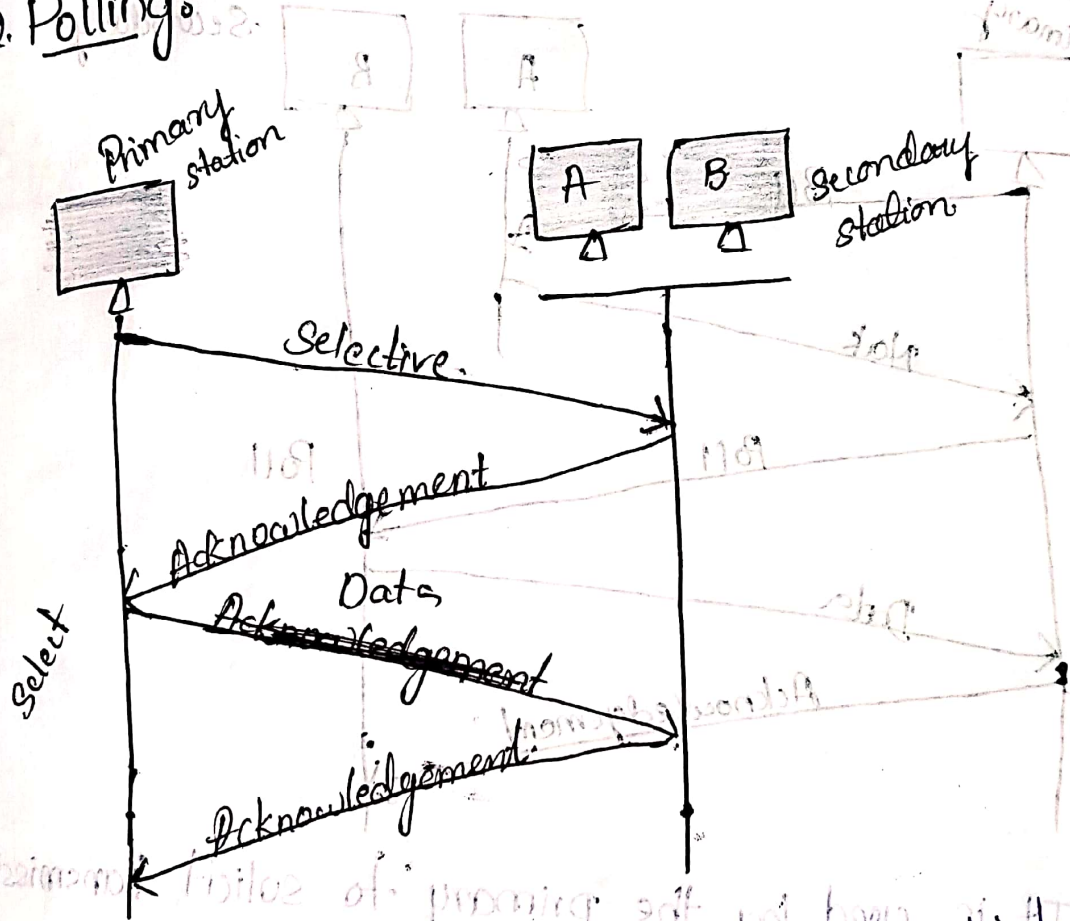 2. Polling:
Primary
station
A
B
Secondary
station
Selective.
Acknowledgement
Data
Select
Acknowledgement.